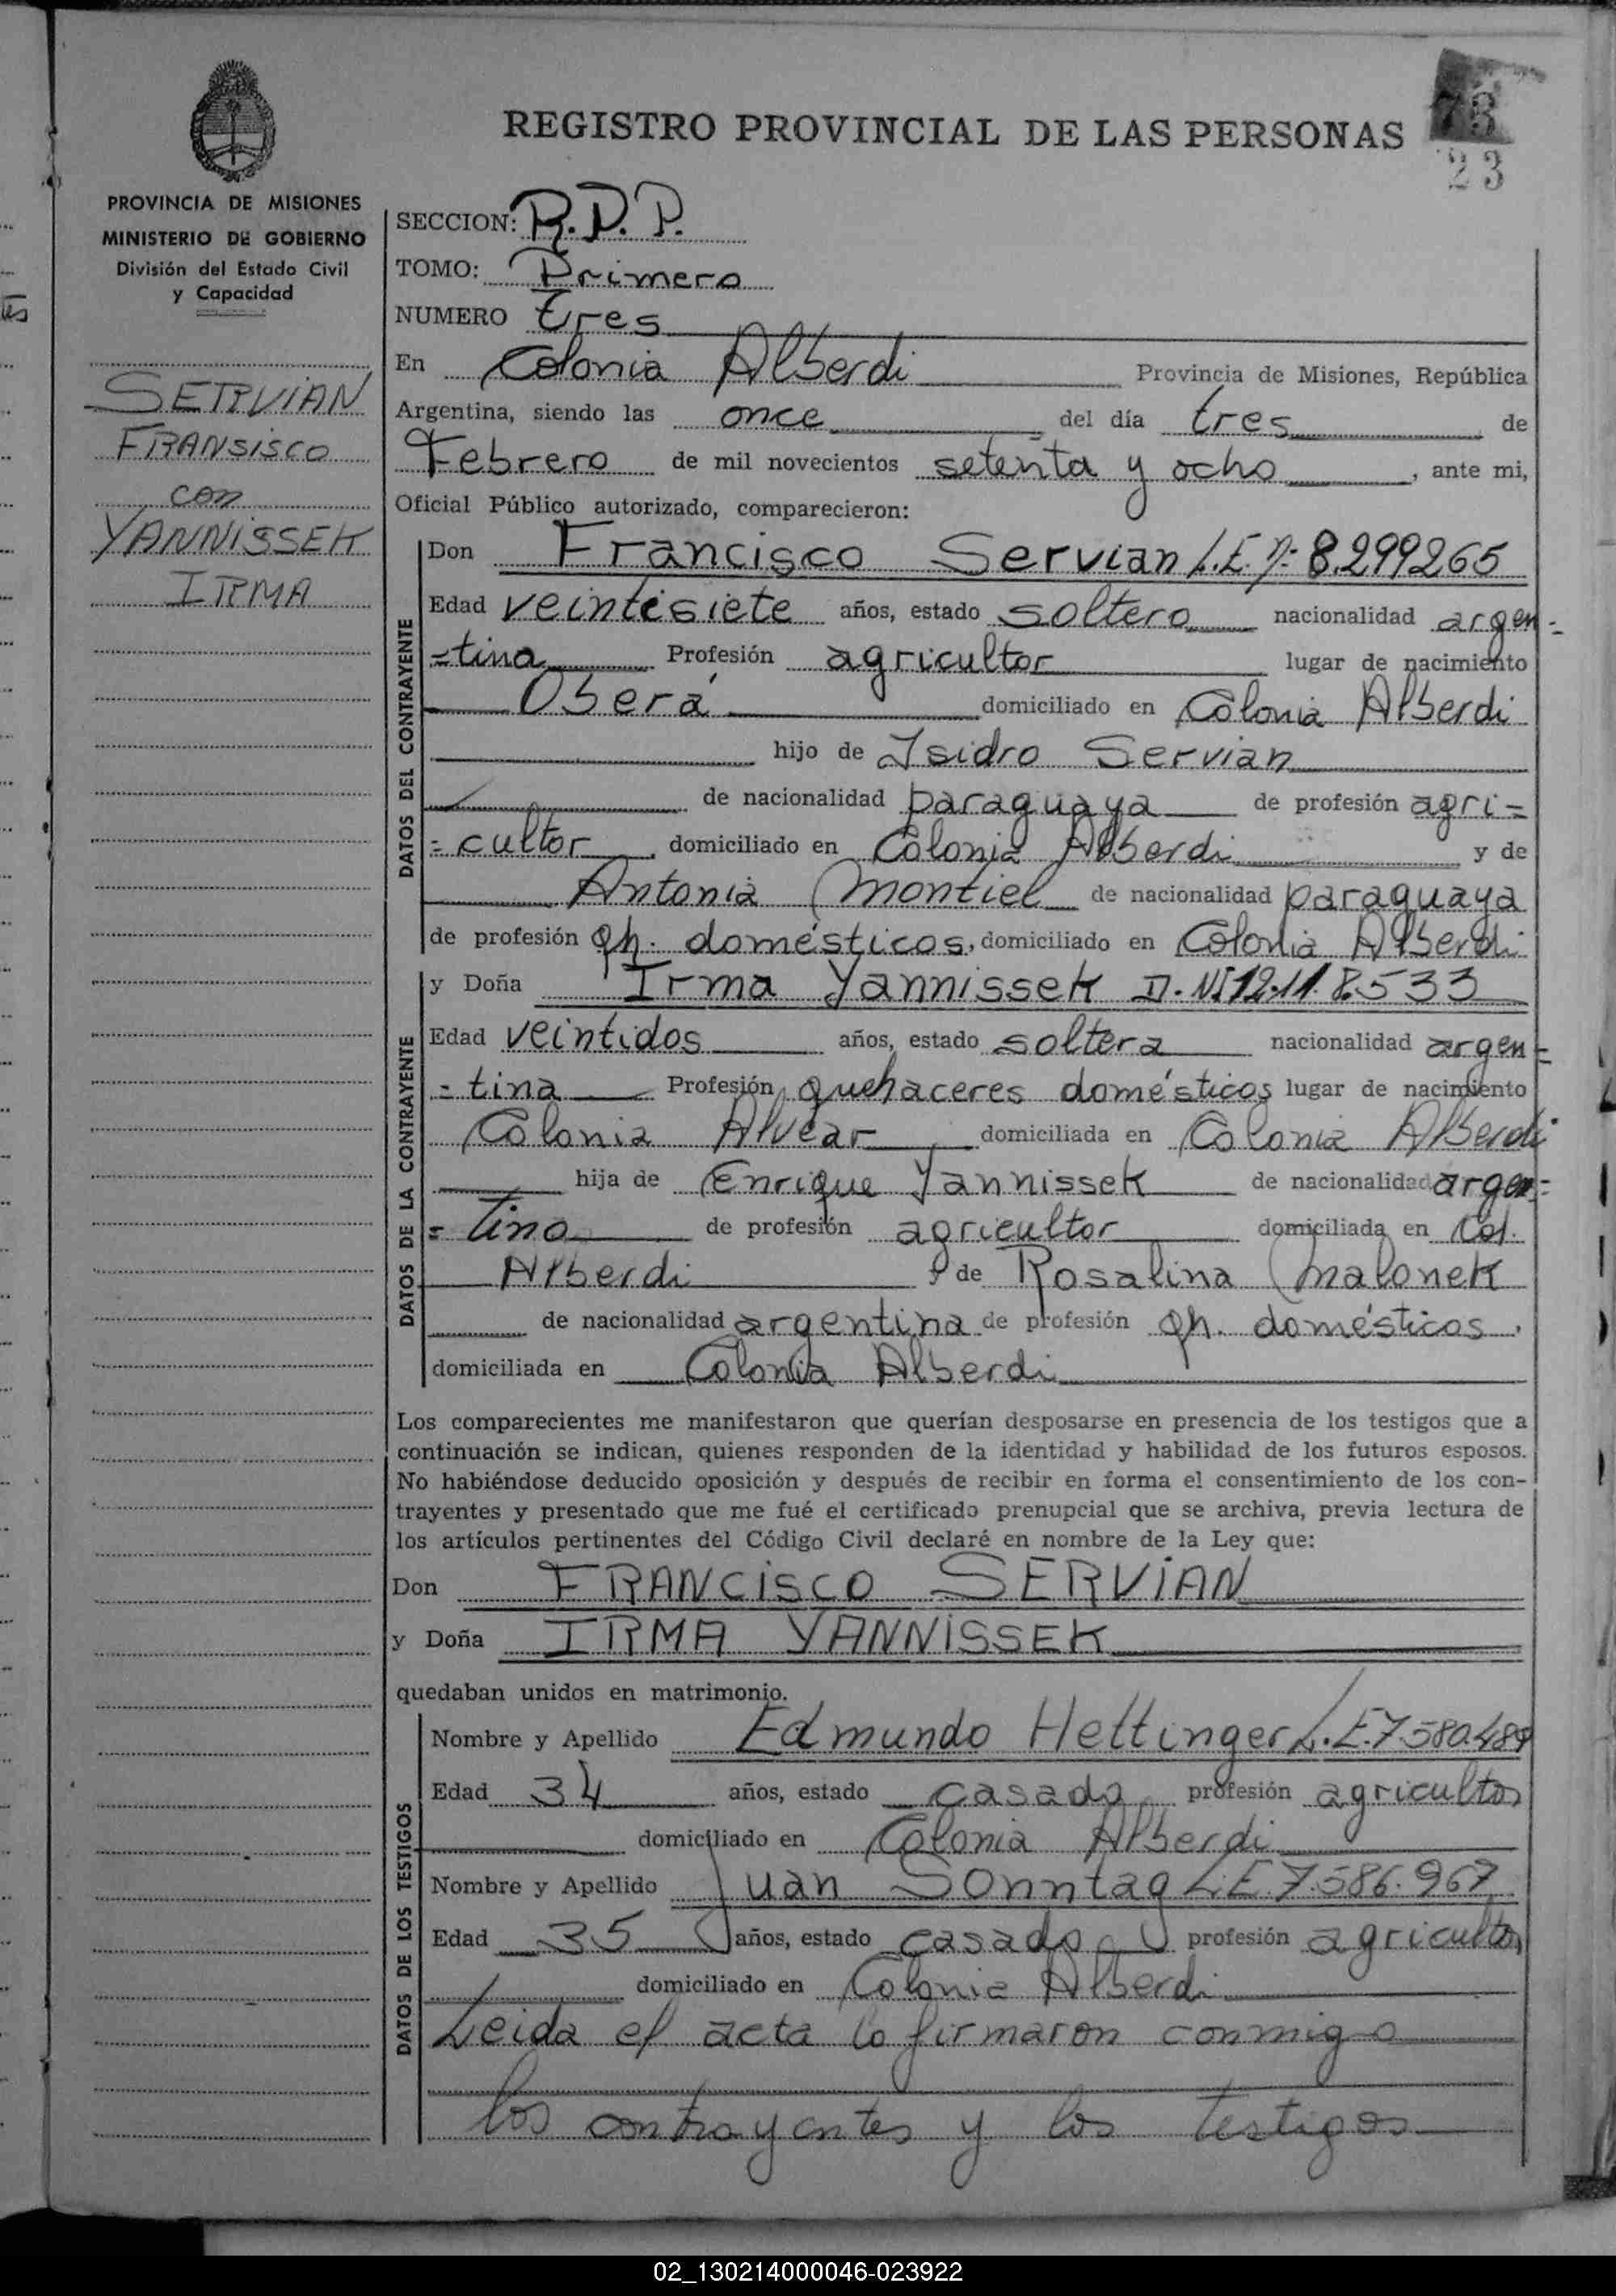 REGISTRO PROVINCIAL DE LAS PERSONAS
23
PROVINCIA DE MISIONES
MINISTERIO DE GOBIERNO
División del Estado Civil
y Capacidad
SERVIAN
FRANSISCO
con
YANNISSEK
IRMA
SECCION: R.P.P.
TOMO: Primero
NUMERO tres
En Colonia Alberdi Provincia de Misiones, República
Argentina, siendo las once del día tres de
Febrero de mil novecientos setenta y ocho, ante mi,
Oficial Público autorizado, comparecieron:
DATOS DEL CONTRAYENTE
Don Francisco Servian L.E. Nº 8.299265
Edad veintisiete años, estado soltero nacionalidad argen=
=tina Profesión agricultor lugar de nacimiento
Oberá domiciliado en Colonia Alberdi
hijo de Isidro Servian
de nacionalidad paraguaya de profesión agri=
=cultor domiciliado en Colonia Alberdi y de
Antonia Montiel de nacionalidad paraguaya
de profesión qh. domésticos, domiciliado en Colonia Alberdi
DATOS DE LA CONTRAYENTE
y Doña Irma Yannissek D.NI 12.118.533
Edad veintidos años, estado soltera nacionalidad argen=
=tina Profesión quehaceres domésticos lugar de nacimiento
Colonia Alvear domiciliada en Colonia Alberdi
hija de Enrique Yannissek de nacionalidad argen=
=tina de profesión agricultor domiciliada en Col.
Alberdi y de Rosalina Malonek
de nacionalidad argentina de profesión qh. domésticos,
domiciliada en Colonia Alberdi
Los comparecientes me manifestaron que querían desposarse en presencia de los testigos que a
continuación se indican, quienes responden de la identidad y habilidad de los futuros esposos.
No habiéndose deducido oposición y después de recibir en forma el consentimiento de los con-
trayentes y presentado que me fué el certificado prenupcial que se archiva, previa lectura de
los artículos pertinentes del Código Civil declaré en nombre de la Ley que:
Don FRANCISCO SERVIAN
y Doña IRMA YANNISSEK
quedaban unidos en matrimonio.
DATOS DE LOS TESTIGOS
Nombre y Apellido Edmundo Hettinger L.E.7.580.489
Edad 34 años, estado casado profesión agricultor
domiciliado en Colonia Alberdi
Nombre y Apellido Juan Sonntag L.E.7.586.967
Edad 35 años, estado casado profesión agricultor
domiciliado en Colonia Alberdi
Leida el acta lo firmaron conmigo
los contrayentes y los testigos
02_130214000046-023922